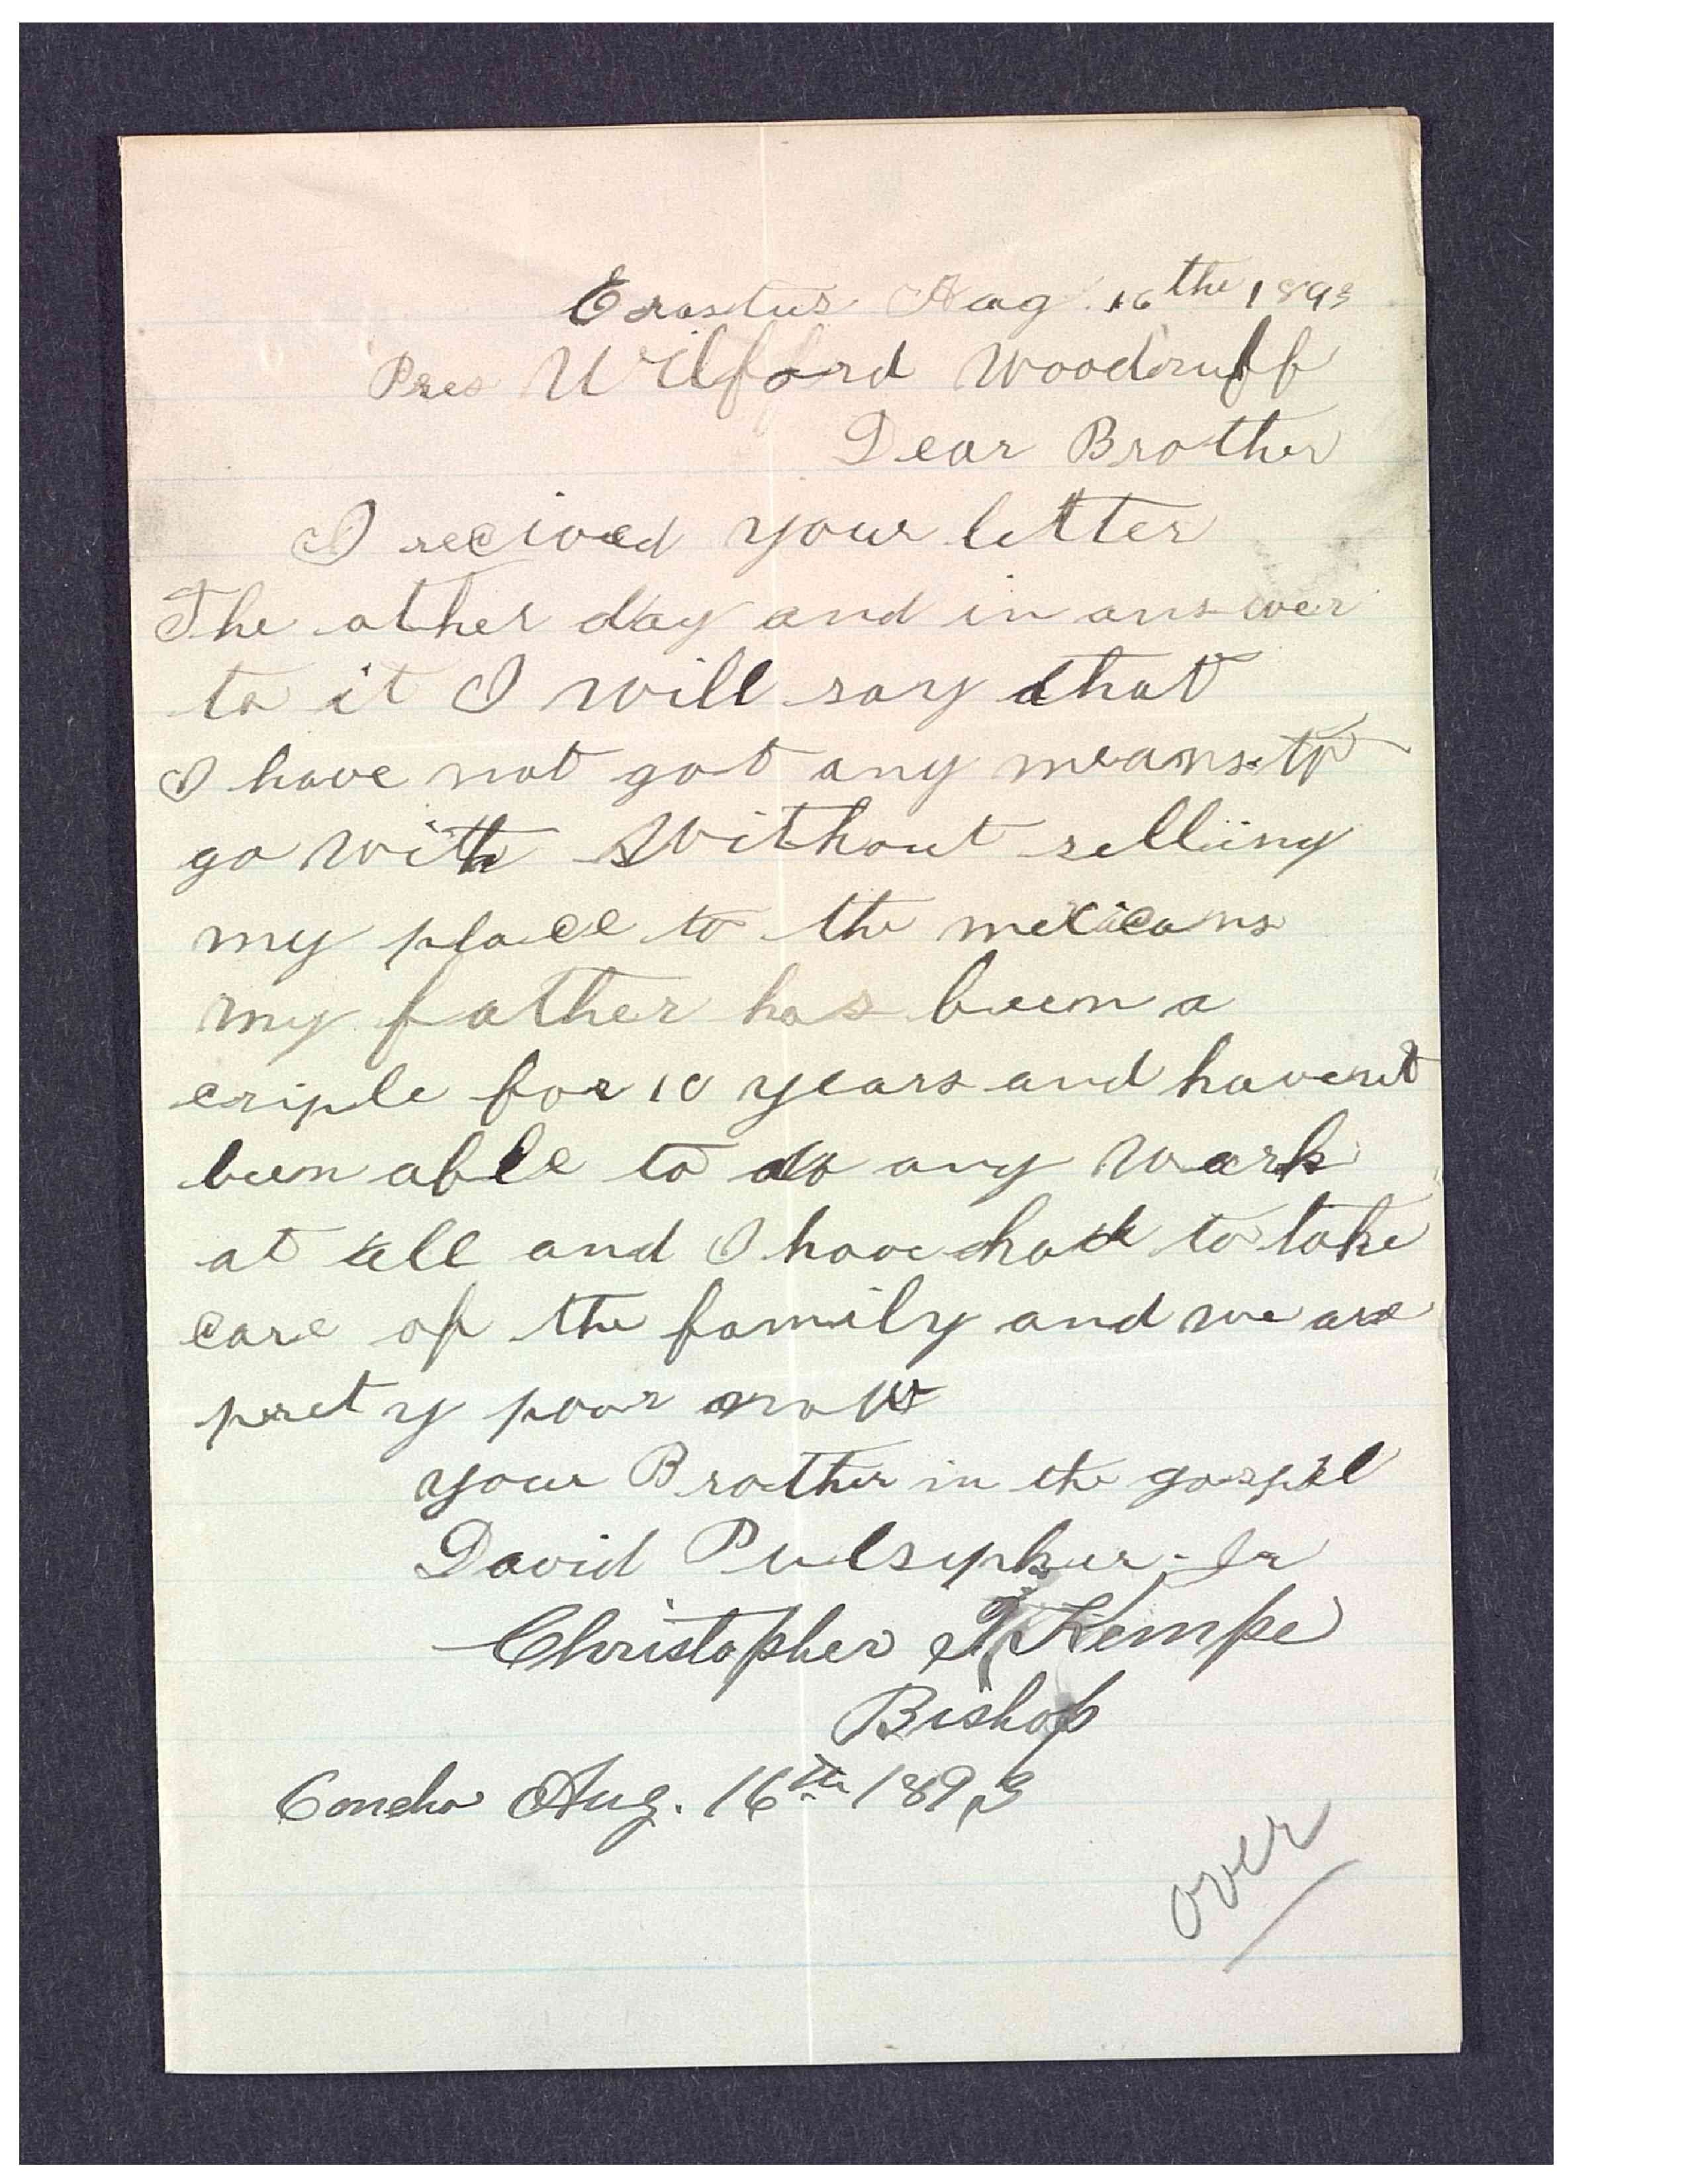 Erastus Aug 16 the 1893
Pres Wilford Woodruff
Dear Brother
I recived your letter
The other day and in answer
to it I will say that
I have not got any means to
go with Without selling
my place to the mexicans
my father has been a
criple for 10 years and havent
been able to do any work
at all and I have had to take
care of the family and we are
prety poor now
your Brother in the gospel
David Pulsipher Jr
Christopher I Kempe
Bishop
Concho Aug. 16th 1893
over